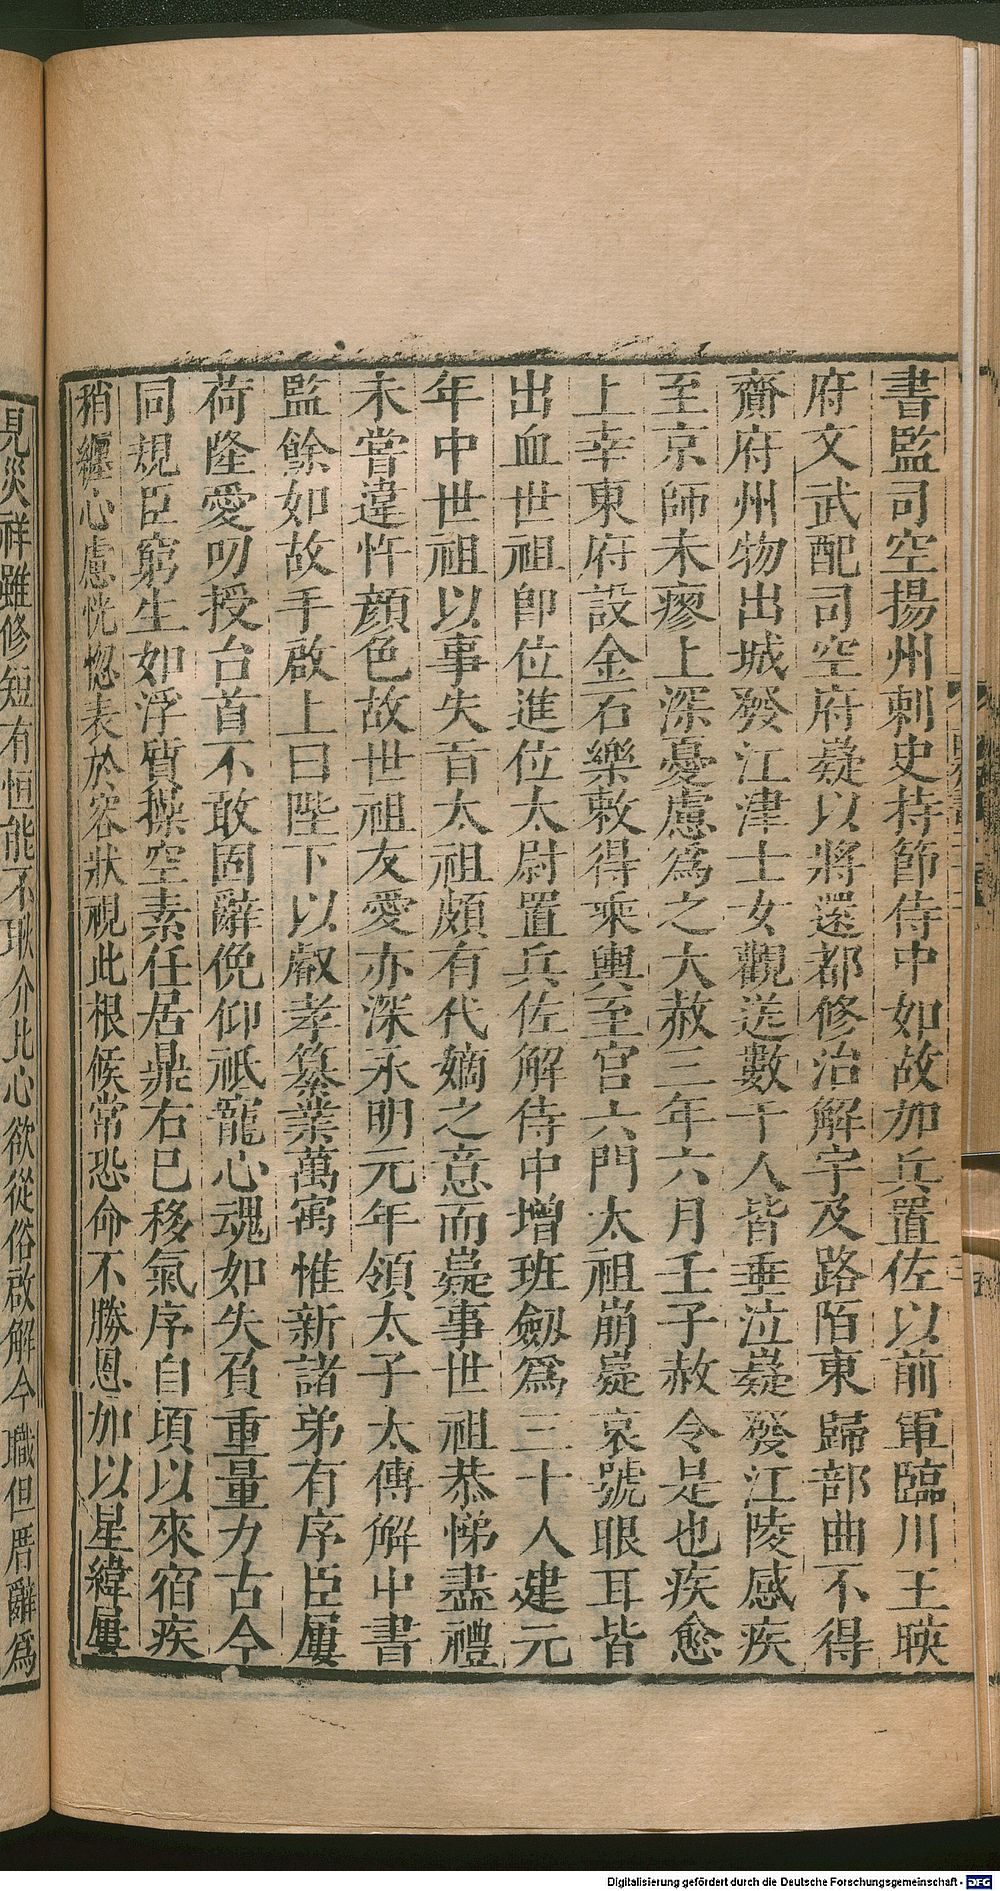 書監司空揚州刺史持節侍中如故加兵置佐以前軍臨川王映
府文武配司空府嶷以將還都修治廨宇及路陌東歸部曲不得
齎府州物出城發江津士女觀送數千人皆垂泣嶷發江陵感疾
至京師未瘳上深憂慮爲之大赦三年六月壬子赦令是也疾愈
上幸東府設金石樂敕得乘輿至宮六門太祖崩嶷哀號眼耳皆
出血世祖卽位進位太尉置兵佐解侍中增班劒爲三十人建元
年中世祖以事失旨太祖頗有代嫡之意而嶷事世祖恭悌盡禮
未嘗違忤顏色故世祖友愛亦深永明元年領太子太傅解中書
監餘如故手啟上曰陛下以叡孝纂業萬寓惟新諸弟有序臣屢
荷隆愛叨授台首不敢固辭俛仰祇寵心魂如失負重量力古今
同規臣窮生如浮質操空素任居鼎右已移氣序自頃以來宿疾
稍纏心慮恍惚表於容狀視此根候常恐命不勝恩加以星緯屢
見災祥雖修短有恒能不耿介比心欲從俗啟解今職但厝辭爲
Digitalisierung gefördert durch die Deutsche Forschungsgemeinschaft - DFG